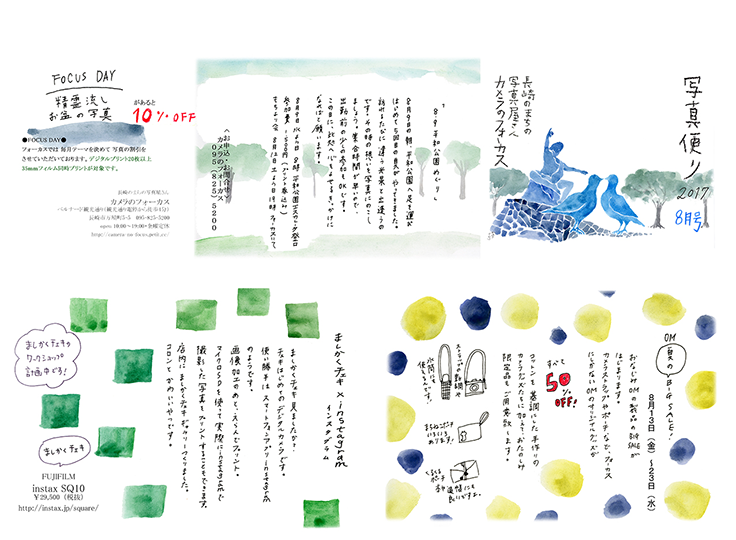 写真便り
2017
8月号
長崎のまちの
写真屋さん
カメラのフォーカス
「8.9 平和公園めぐり」
8月9日の朝、平和公園へ足を運び
はじめて5回目の夏がやってきました。
訪れるたびに違う光景と出逢うの
です。その時の想いを写真にのこし
ましょう。集合時間が早いので、
出勤前の少しの参加もOKです。
この日に、北村へ
なればと願います。
8月9日 水よう日 8時 平和公園エスカレータ登口
参加費 1500円（プリント券込み）
もちより会 8月12日 土よう日 19時 フォーカスにて
〈お申込・お問合せ〉
カメラのフォーカス
095(825)5200
FOCUS DAY
精霊流し
お盆の写真
があると
10% OFF
●FOCUS DAY●
フォーカスでは毎月テーマを決めて写真の割引を
させていただいております。デジタルプリント20枚以上
35mmフィルム同時プリントが対象です。
長崎のまちの写真屋さん
カメラのフォーカス
長崎市万屋町5-5 095-825-5200
open 10:00〜19:00 金曜定休
OM 夏のBIG SALE!
8月13日（金）〜23日（水）
おなじみOMの製品のBIG SALEが
はじまります。
カメラストラップやポーチなど、フォーカス
にしかないOMのオリジナルグッズが
すべて
50% OFF!
コットンを基調にした手作りの
カメラグッズたちに加えて、おたのしみ
限定品もご用意致します。
ましかくチェキ×instagram
インスタグラム
ましかくチェキ、見ましたか？
チェキはじめてのデジタルカメラです。
使い勝手は、スマートフォンアプリinstagram
のようです。
画像加工をめて、スイスイプリント。
マイクロSDを使って実際にinstagramで
撮影した写真もプリントすることもできます。
店内にましかくチェキギャラリーつくりました。
コロンとかわいいやつです。
ましかくチェキの
ワークショップ
計画中デス！
ましかくチェキ
FUJIFILM
instax SQ10
¥29,500（税抜）
http://instax.jp/square/